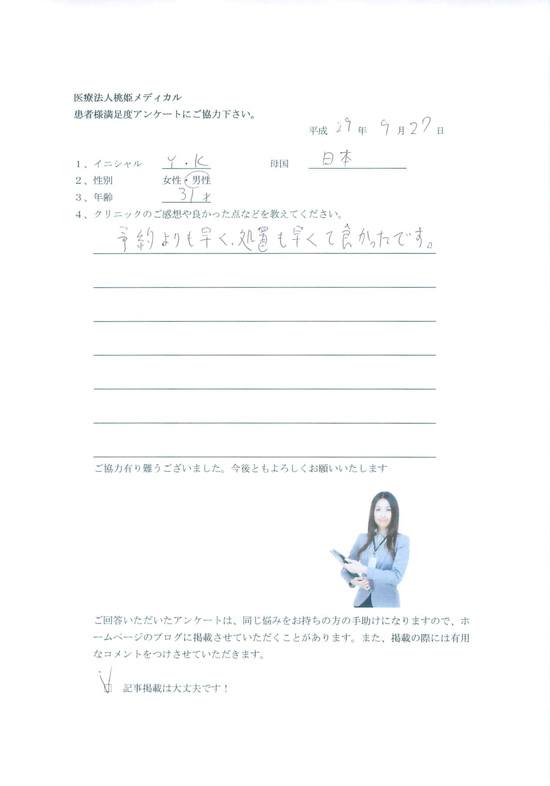 医療法人桃姫メディカル
患者様満足度アンケートにご協力下さい。
平成 29 年 9 月 27 日
1、イニシャル Y・K 母国 日本
2、性別 女性・男性
3、年齢 31才
4、クリニックのご感想や良かった点などを教えてください。
予約よりも早く、処置も早くて良かったです。
ご協力有り難うございました。今後ともよろしくお願いいたします
ご回答いただいたアンケートは、同じ悩みをお持ちの方の手助けになりますので、ホ
ームページのブログに掲載させていただくことがあります。また、掲載の際には有用
なコメントをつけさせていただきます。
記事掲載は大丈夫です！